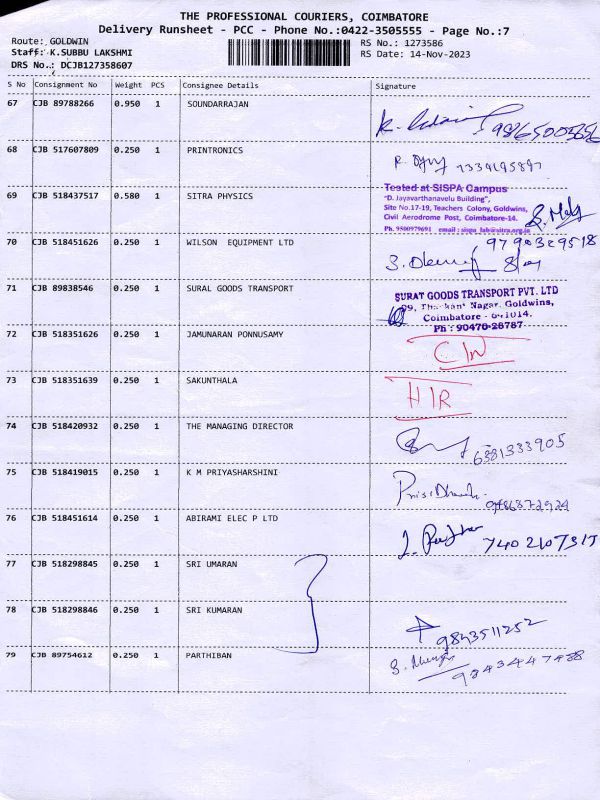 THE PROFESSIONAL COURIERS, COIMBATORE
Delivery Runsheet - PCC - Phone No.:0422-3505555 - Page No.:7
Route: GOLDWIN
RS No.: 1273586
Staff: K.SUBBU LAKSHMI
RS Date: 14-Nov-2023
DRS No.: DCJB127358607
S No Consignment No Weight PCS Consignee Details Signature
67 CJB 89788266 0.950 1 SOUNDARRAJAN
68 CJB 517607809 0.250 1 PRINTRONICS
69 CJB 518437517 0.580 1 SITRA PHYSICS
Tested at SISPA Campus
"D. Jayavarthanavelu Building",
Site No.17-19, Teachers Colony, Goldwins,
Civil Aerodrome Post, Coimbatore-14.
Ph. 9500979691 email : sispa_lab@sitra.org.in
70 CJB 518451626 0.250 1 WILSON EQUIPMENT LTD
9790329518
71 CJB 89838546 0.250 1 SURAL GOODS TRANSPORT
SURAT GOODS TRANSPORT PVT. LTD
Nagar, Goldwins,
Coimbatore - 641014.
Ph : 90470-26787
72 CJB 518351626 0.250 1 JAMUNARAN PONNUSAMY
73 CJB 518351639 0.250 1 SAKUNTHALA
HIR
74 CJB 518420932 0.250 1 THE MANAGING DIRECTOR
6381333905
75 CJB 518419015 0.250 1 K M PRIYASHARSHINI
76 CJB 518451614 0.250 1 ABIRAMI ELEC P LTD
77 CJB 518298845 0.250 1 SRI UMARAN
78 CJB 518298846 0.250 1 SRI KUMARAN
9843511252
79 CJB 89754612 0.250 1 PARTHIBAN